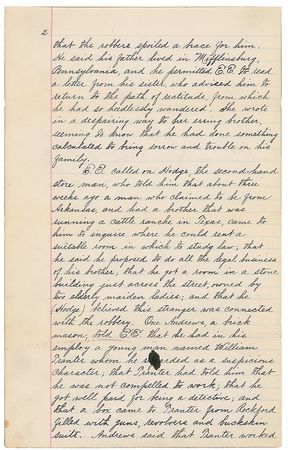 2
that the robbers spoiled a brace for him.
He said his father lived in Mifflinsburg,
Pennsylvania, and he permitted E.E. to read
a letter from his sister who advised him to
return to the path of rectitude from which
he had so heedlessly wandered. She wrote
in a despairing way to her erring brother,
seeming to know that he had done something
calculated to bring sorrow and trouble on his
family.
E.E. called on Hodge, the second-hand
store man, who told him that about three
weeks ago a man who claimed to be from
Arkansas, and had a brother that was
running a cattle ranch in Texas, came to
him to inquire where he could rent a
suitable room in which to study law; that
he said he proposed to do all the legal business
of his brother; that he got a room in a stone
building just across the street, owned by
two elderly maiden ladies; and that he
(Hodge) believed this stranger was connected
with the robbery. One Andrews, a brick
mason, told E.E. that he had in his
employ a young man named William
Pranter whom he regarded as a suspicious
character; that Pranter had told him that
he was not compelled to work; that he
got well paid for being a detective; and
that a box came to Pranter from Rockford
filled with guns, revolvers and buckskin
suits. Andrews said that Pranter worked